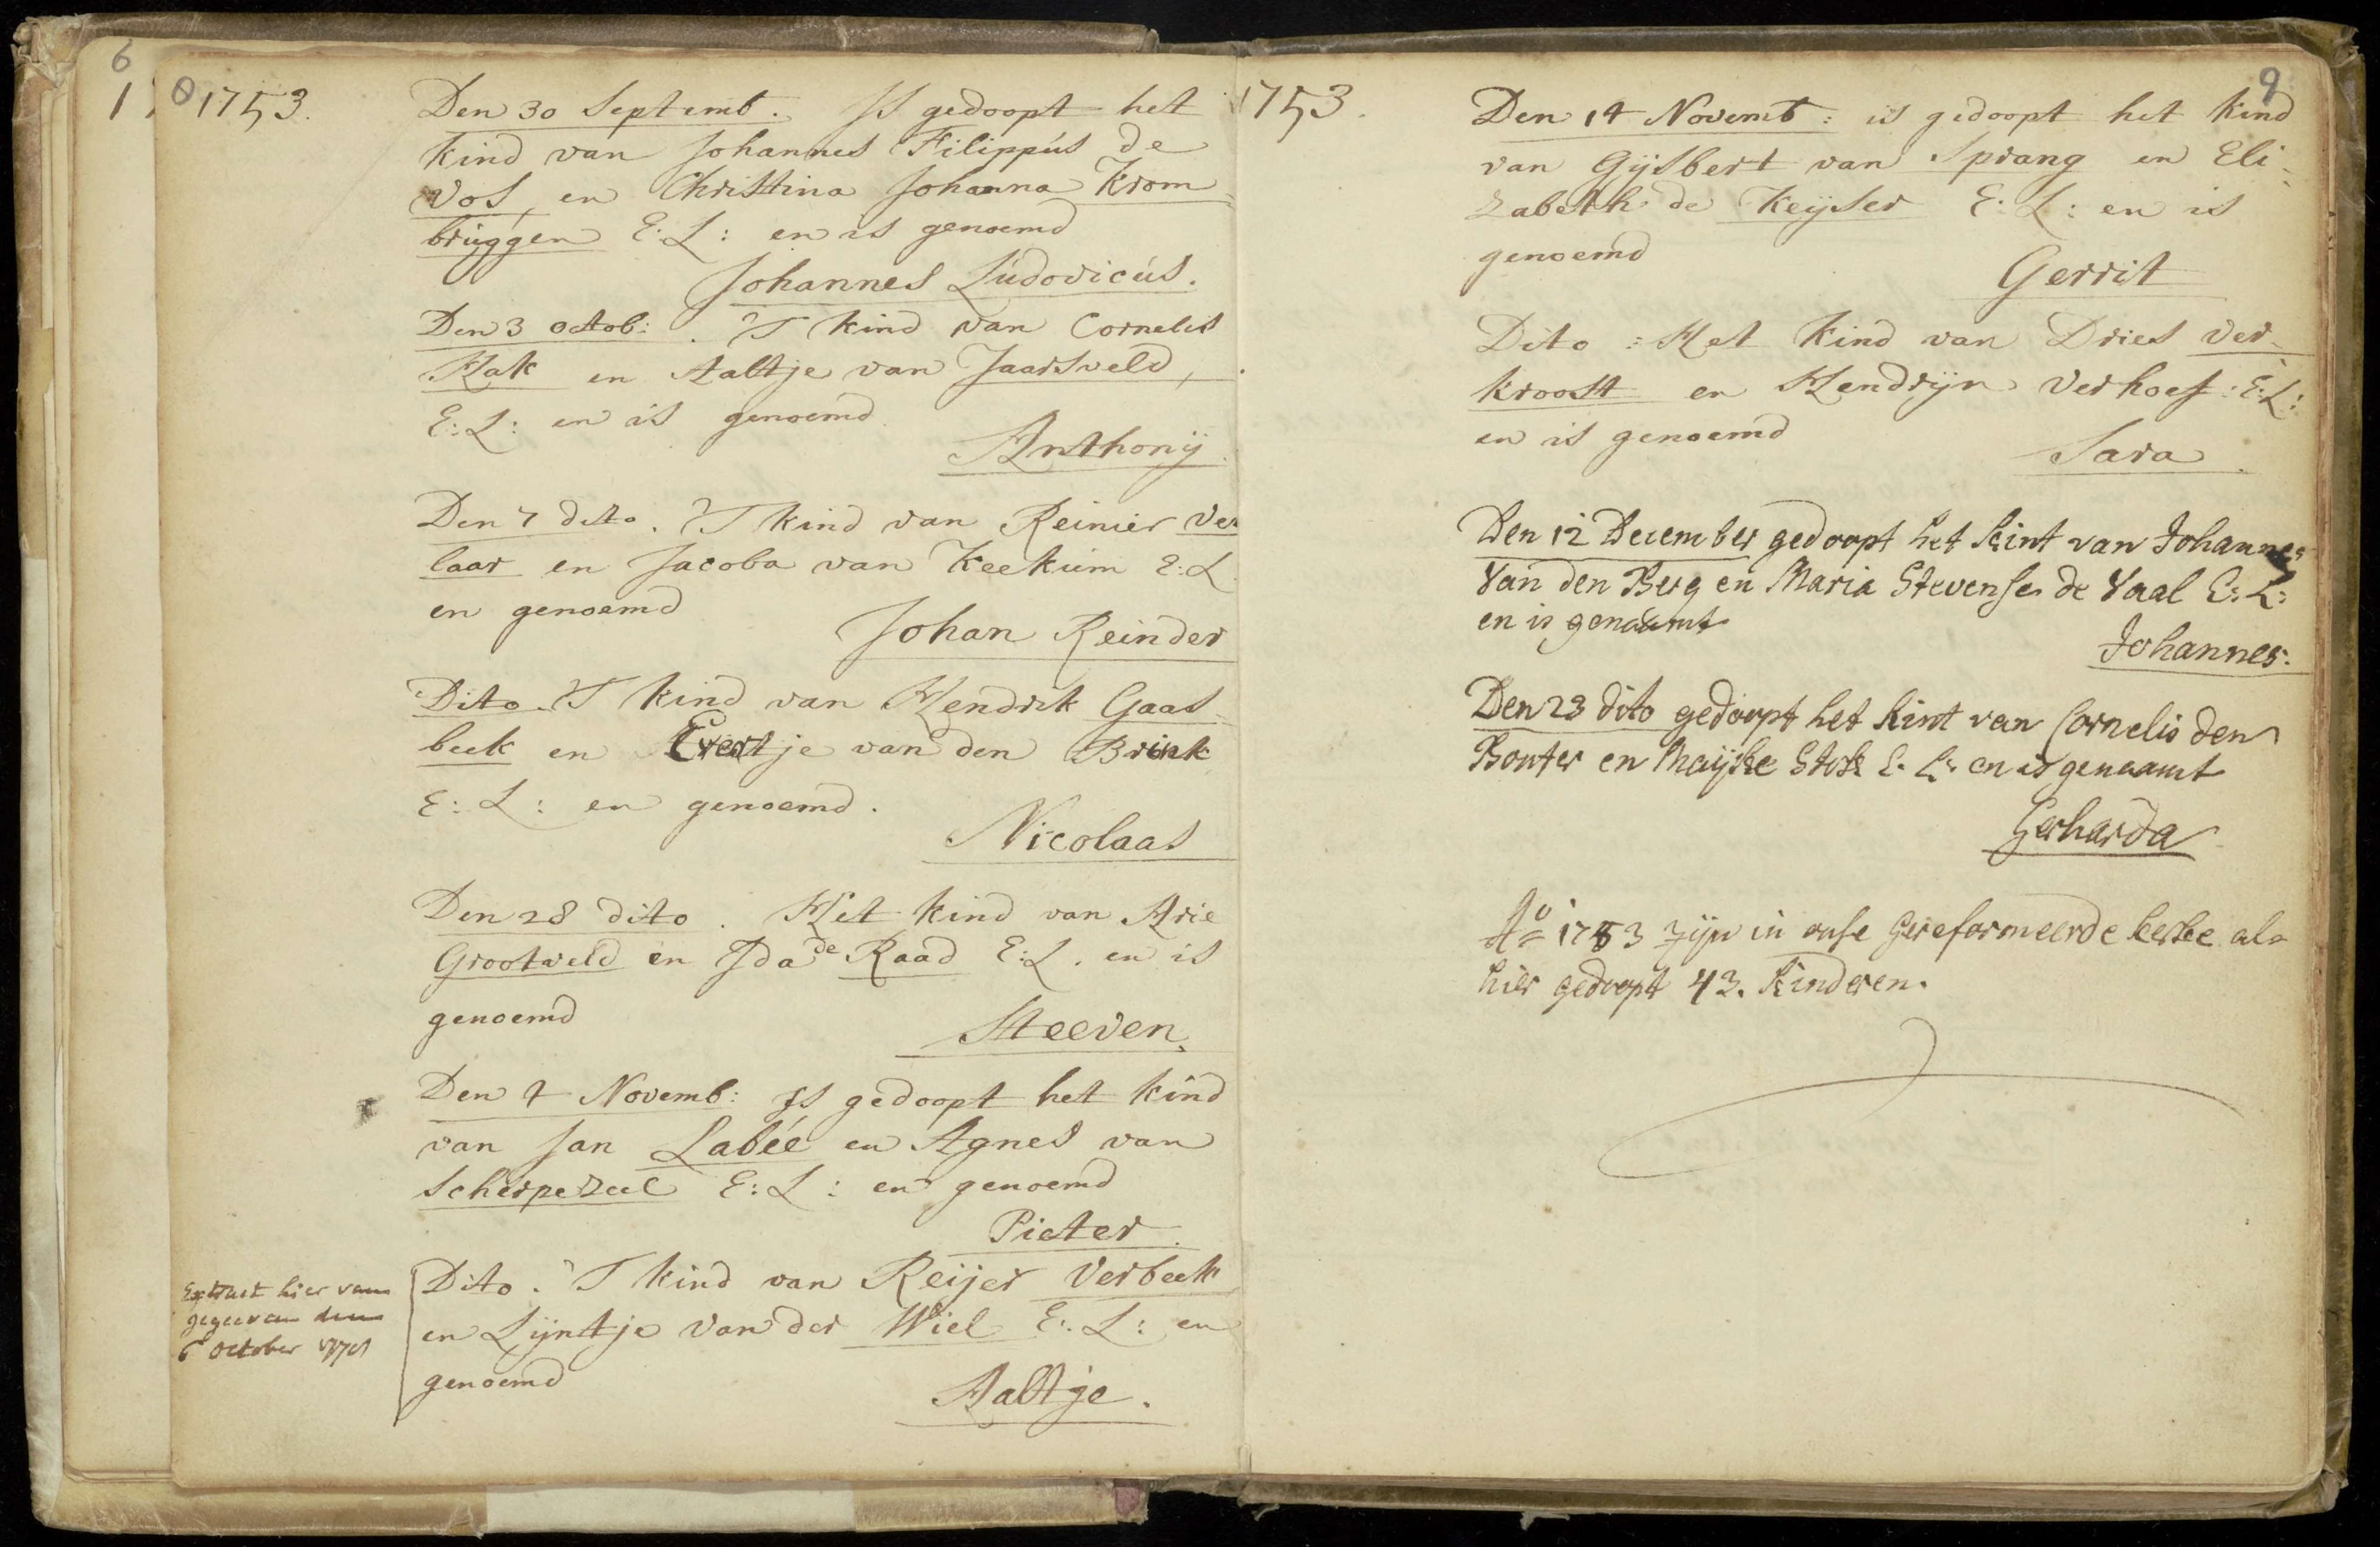 6
8
1753.
Den 30 Septemb. Is gedoopt het
kind van Johannes Filippus de
Vos, en Christina Johanna Krom
bruggen E:L: en is genoemd
Johannes Ludovicus.
Den 3 octob: . 'T kind van Cornelis
Kak en Aaltje van Jaarsveld,
E:L: en is genoemd
Anthonij.
Den 7 dito. 'T kind van Reinier Ver
laar en Jacoba van Keekum E:L
en genoemd
Johan Reinder
Dito. 'T kind van Hendrik Gaas-
beek en Evertje van den Brink
E:L: en genoemd.
Nicolaas
Den 28 dito. Het kind van Arie
Grootveld en Ida de Raad E:L. en is
genoemd
Steeven.
Den 4 Novemb: Is gedoopt het kind
van Jan Labée en Agnes van
Scherpezeel E:L: en genoemd
Pieter.
Extract hier van
gegeeven den
6 October
Dito. 'T kind van Reijer Verbeek
en Lijntje van der Wiel E:L: en
genoemd
Aaltje.
9
1753.
Den 14 Novemb: is gedoopt het kind
van Gijsbert van Sprang en Eli-
zabeth de Keijser E:L: en is
genoemd
Gerrit
Dito: Het kind van Dries Ver-
kroost en Hendrijn Verhoef: E:L:
en is genoemd
Sara
Den 12 December gedoopt het kint van Johannes
Van den Berg en Maria Stevense de Vaal E:L:
en is genaamt
Johannes.
Den 23 dito gedoopt het kint van Cornelis den
Bouter en Maijke Stok E. L. en is genaamt
Gerharda
Ao 1753 zijn in onse Gereformeerde kerke al-
hier gedoopt 43. Kinderen.